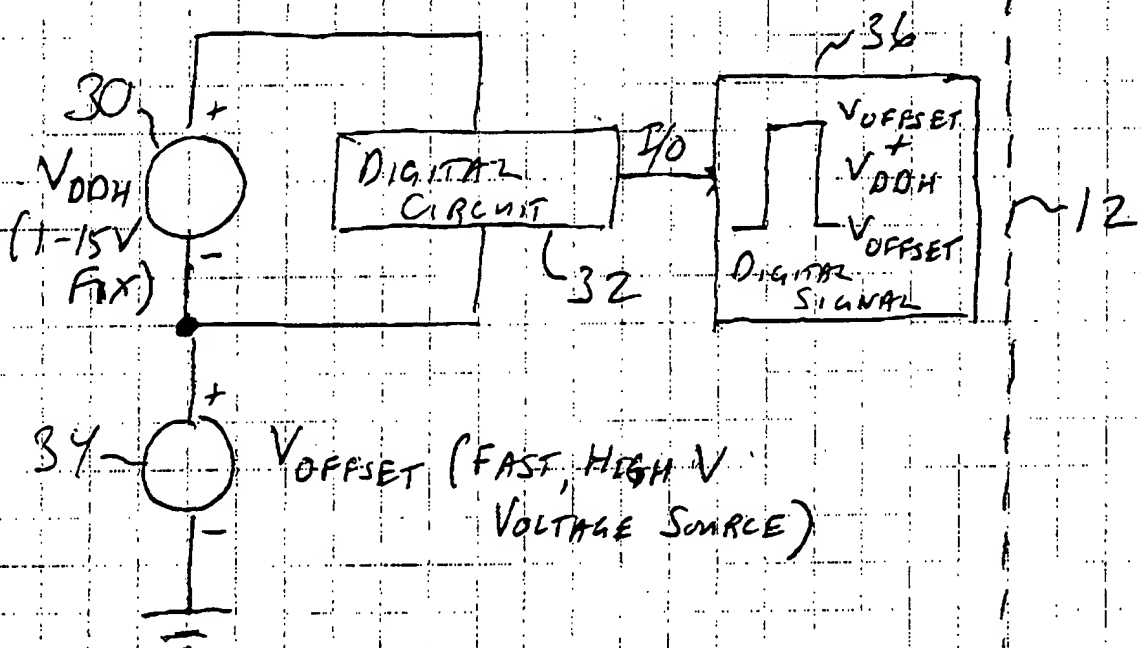 30
+
VDDH
(1-15V
FIX)
-
DIGITAL
CIRCUIT
32
I/O
36
VOFFSET
+
VDDH
VOFFSET
DIGITAL
SIGNAL
12
34
+
-
VOFFSET (FAST, HIGH V
VOLTAGE SOURCE)